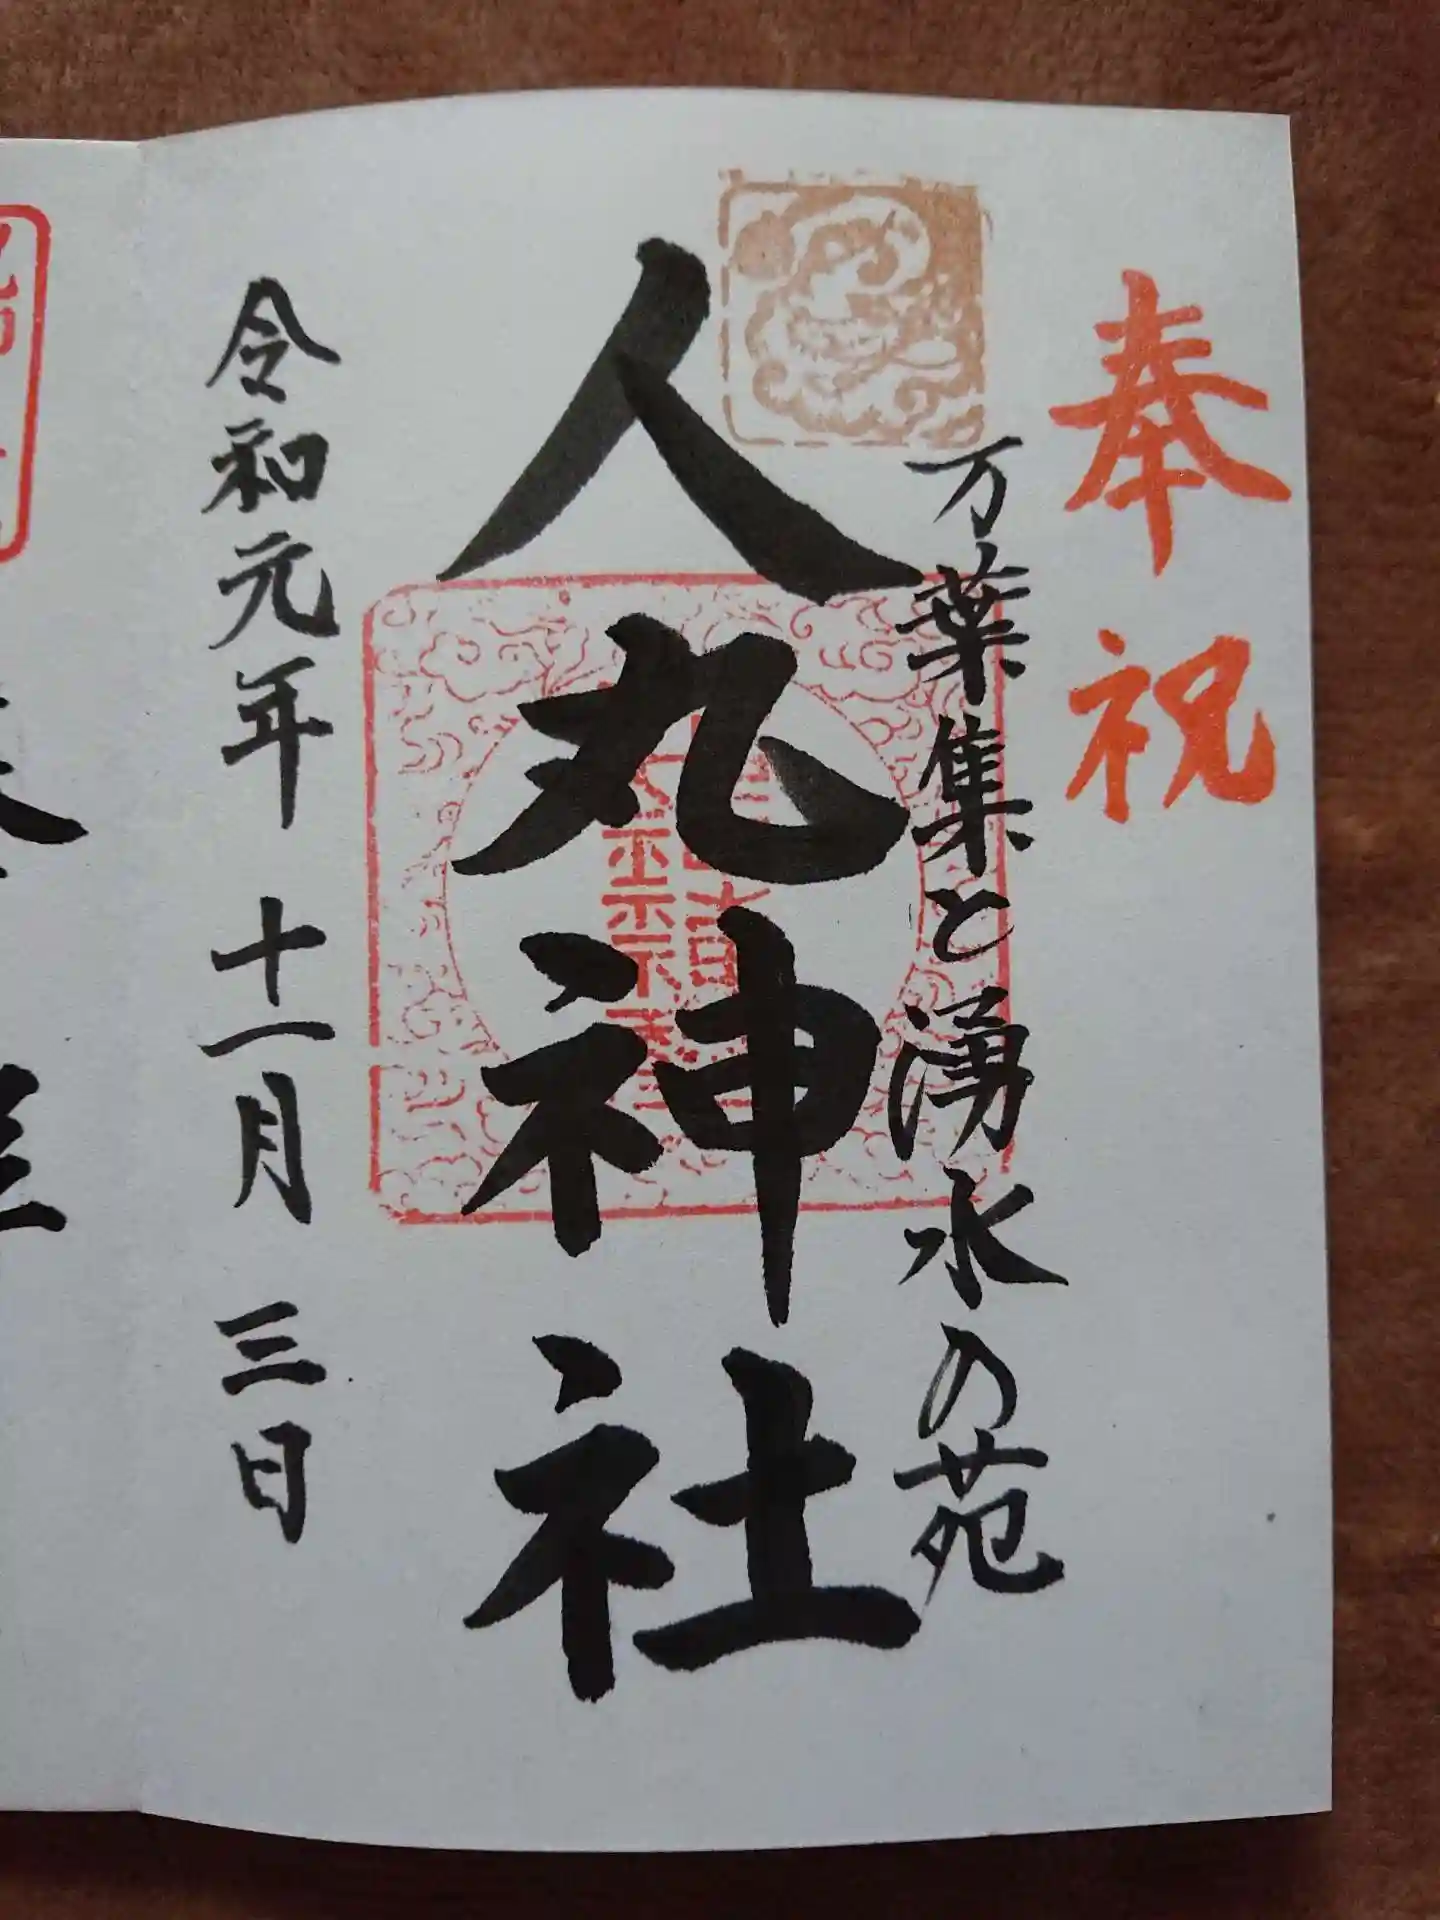 奉祝
万葉集と湧水の苑
人丸神社
令和元年十一月三日